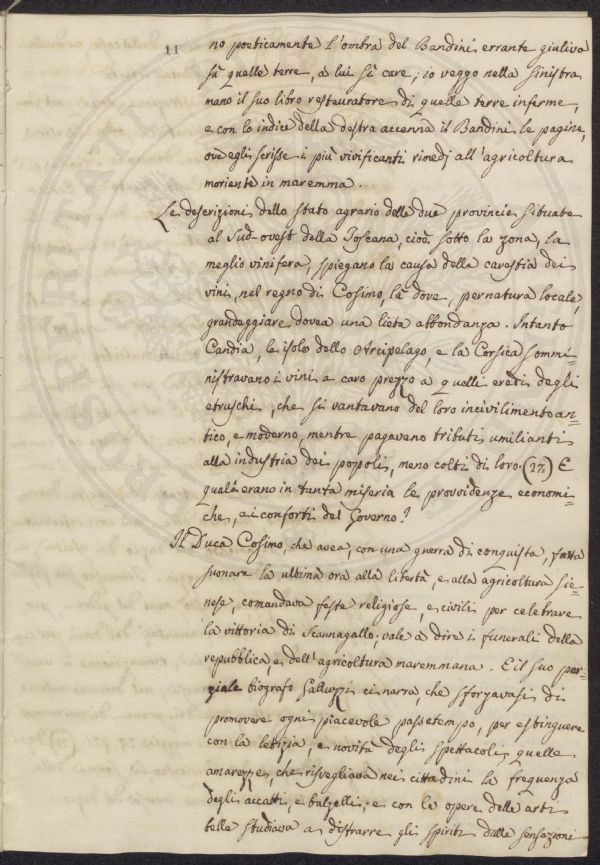 11 no poeticamente l'ombra del Bandini errante giuliva
sù quelle terre, a lui sì care; io veggo nella sinistra
mano il suo libro restauratore di quelle terre inferme,
e con lo indice della destra accenna il Bandini le pagine,
ove egli scrisse i più vivificanti rimedj all'agricoltura
moriente in maremma.
Le descrizioni dello stato agrario delle due provincie situate
al Sud-ovest della Toscana, cioè sotto la zona, la
meglio vinifera, spiegano la causa della carestia dei
vini, nel regno di Cosimo, là dove, per natura locale,
grandeggiare dovea una lieta abbondanza. Intanto
Candia, le isole dello Arcipelago, e la Corsica sommi=
nistravano i vini a caro prezzo a quelli eredi degli
etruschi, che si vantavano del loro incivilimento an=
tico, e moderno, mentre pagavano tributi umilianti
alla industria dei popoli, meno colti di loro. (17=) E
quali erano in tanta miseria le provvidenze economi=
che, e i conforti del Governo?
Il Duca Cosimo, che avea, con una guerra di conquista, fatta
suonare la ultima ora alla libertà, e alla agricoltura sie=
nese, comandava feste religiose, e civili per celebrare
la vittoria di Scannagallo, vale a dire i funerali della
repubblica, e dell'agricoltura maremmana. E il suo par=
ziale biografo Galluzzi ci narra, che sforzavasi di
promovere ogni piacevole passatempo, per estinguere
con la letizia, e novità degli spettacoli quelle
amarezze, che risvegliava nei cittadini la frequenza
degli accatti, e balzelli; e con le opere delle arti
belle studiava a distrarre gli spiriti dalle sensazioni